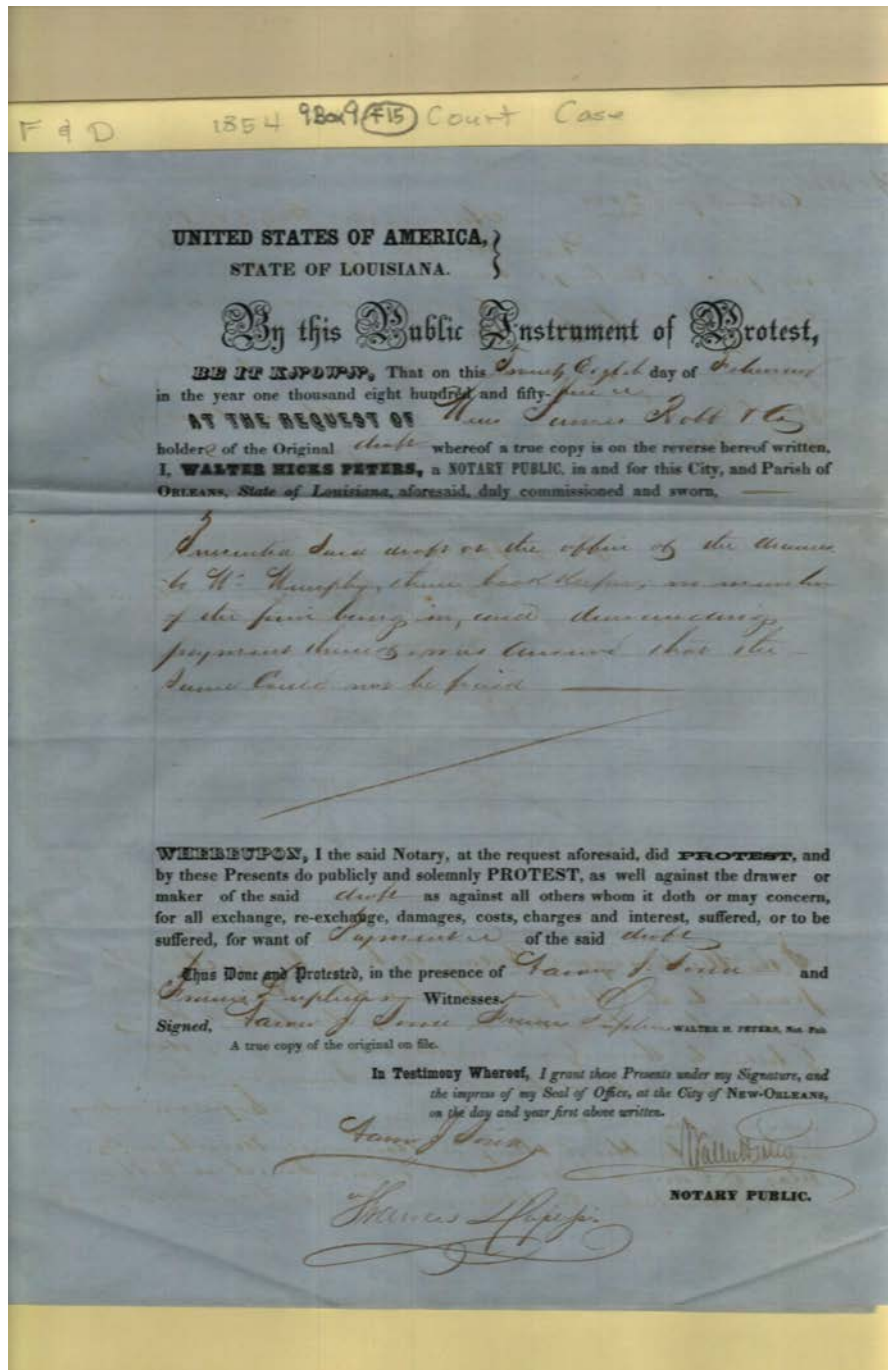 F & D 1854 9Box9 F15 Court Case
UNITED STATES OF AMERICA,
STATE OF LOUISIANA.
By this Public Instrument of Protest,
BE IT KNOWN, That on this Twenty Eighth day of February
in the year one thousand eight hundred and fifty-
AT THE REQUEST OF James Robb & Co
holders of the Original draft whereof a true copy is on the reverse hereof written,
I, WALTER HICKS PETERS, a NOTARY PUBLIC, in and for this City, and Parish of
ORLEANS, State of Louisiana, aforesaid, duly commissioned and sworn,
Presented said draft at the office of the
to Mr Murphy, their book keeper, no member
of the firm being in, and demanding
payment thereof was answered that the
same could not be paid
WHEREUPON, I the said Notary, at the request aforesaid, did PROTEST, and
by these Presents do publicly and solemnly PROTEST, as well against the drawer or
maker of the said draft as against all others whom it doth or may concern,
for all exchange, re-exchange, damages, costs, charges and interest, suffered, or to be
suffered, for want of Payment of the said draft
Thus Done and Protested, in the presence of and
Witnesses.
Signed, WALTER H. PETERS, Not. Pub.
A true copy of the original on file.
In Testimony Whereof, I grant these Presents under my Signature, and
the impress of my Seal of Office, at the City of NEW-ORLEANS,
on the day and year first above written.
NOTARY PUBLIC.
Frances